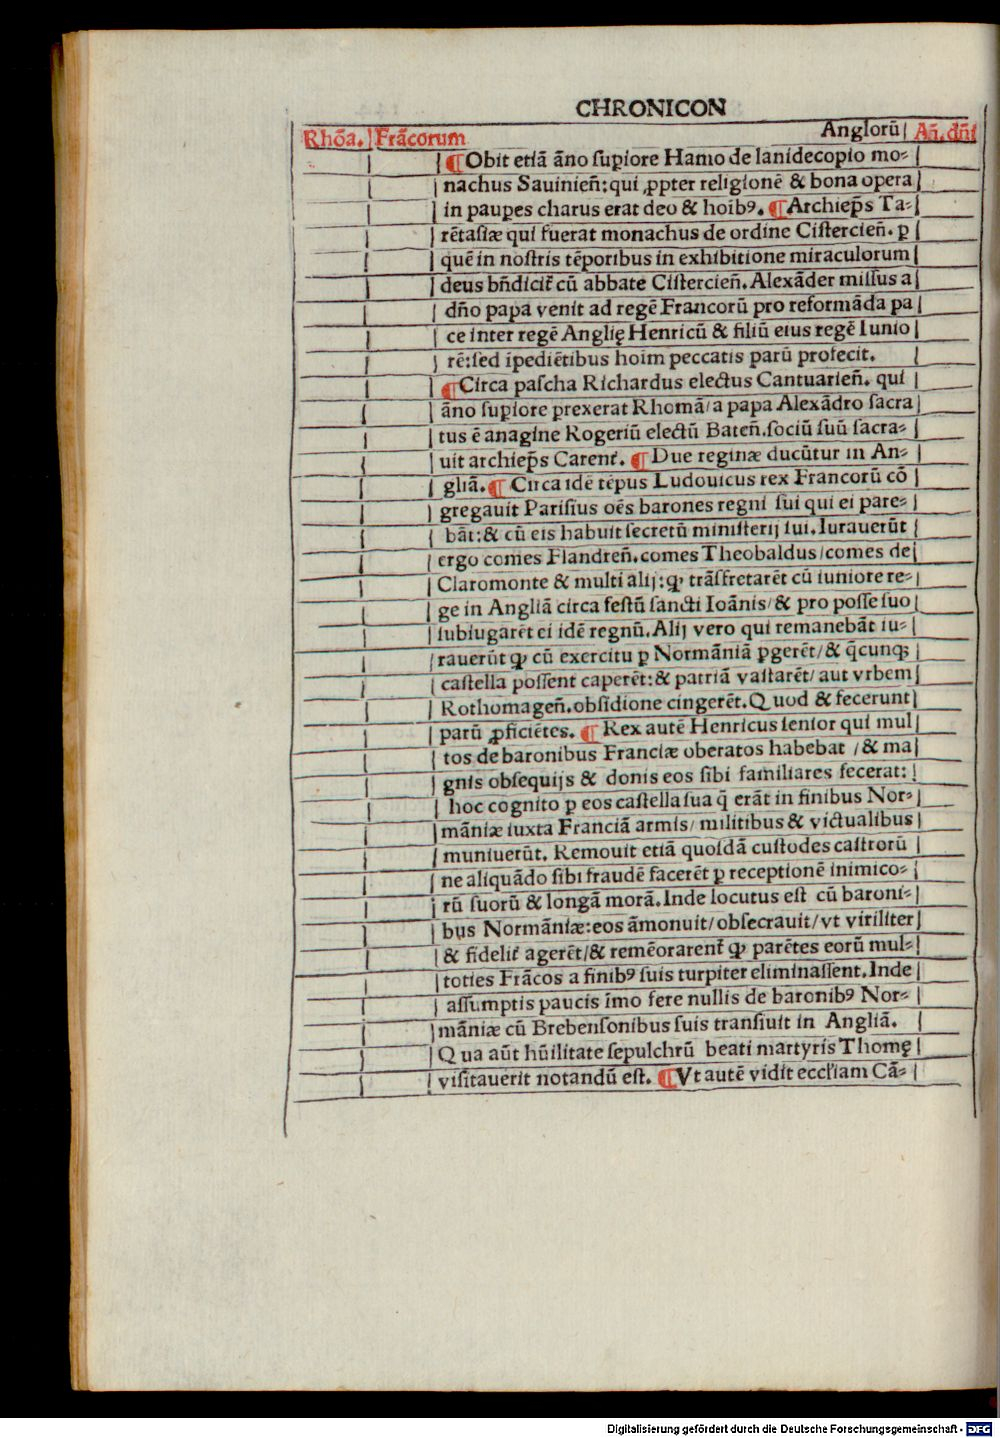 CHRONICON
Rhōa. Frācorum Anglorū Añ. dñi
¶ Obit etiā āno ſuꝑiore Hamo de lanidecopio mo⸗
nachus Sauinieñ: qui ꝓpter religionē & bona opera
in pauꝑes charus erat deo & hoībꝰ. ¶ Archiep̄s Ta⸗
rētaſiæ qui fuerat monachus de ordine Ciſtercieñ. ꝑ
quē in noſtris tēporibus in exhibitione miraculorum
deus bñdicit̃ cū abbate Ciſtercieñ. Alexāder miſſus a
dño papa venit ad regē Francorū pro reformāda pa
ce inter regē Anglię Henricū & filiū eius regē Iunio
rē: ſed īpediētibus hoīm peccatis parū profecit.
¶ Circa paſcha Richardus electus Cantuarieñ. qui
āno ſuꝑiore prexerat Rhomā/ a papa Alexādro ſacra
tus ē anagine Rogeriū electū Bateñ. ſociū ſuū ſacra⸗
uit archiep̄s Carent̃. ¶ Due reginæ ducūtur in An⸗
gliā. ¶ Circa idē tēpus Ludouicus rex Francorū cō
gregauit Pariſius oēs barones regni ſui qui ei pare⸗
bāt: & cū eis habuit ſecretū miniſterij ſui. Iurauerūt
ergo comes Flandreñ. comes Theobaldus/ comes de
Claromonte & multi alij: ꝙ trāſfretarēt cū iuniore re⸗
ge in Angliā circa feſtū ſancti Ioānis/ & pro poſſe ſuo
ſubiugarēt ei idē regnū. Alij vero qui remanebāt iu⸗
rauerūt ꝙ cū exercitu ꝑ Normāniā ꝑgerēt/ & q̄cunqꝫ
caſtella poſſent caperēt: & patriā vaſtarēt/ aut vrbem
Rothomageñ. obſidione cingerēt. Quod & fecerunt
parū ꝓficiētes. ¶ Rex autē Henricus ſenior qui mul
tos de baronibus Franciæ oberatos habebat / & ma
gnis obſequijs & donis eos ſibi familiares fecerat:
hoc cognito ꝑ eos caſtella ſua q̄ erāt in finibus Nor⸗
māniæ iuxta Franciā armis/ militibus & victualibus
muniuerūt. Remouit etiā quoſdā cuſtodes caſtrorū
ne aliquādo ſibi fraudē facerēt ꝑ receptionē inimico⸗
rū ſuorū & longā morā. Inde locutus eſt cū baroni⸗
bus Normāniæ: eos āmonuit/ obſecrauit/ vt viriliter
& fidelit̃ agerēt/ & remēorarent̃ ꝙ parētes eorū mul⸗
toties Frācos a finibꝰ ſuis turpiter eliminaſſent. Inde
aſſumptis paucis īmo fere nullis de baronibꝰ Nor⸗
māniæ cū Brebenſonibus ſuis tranſiuit in Angliā.
Qua aūt hūilitate ſepulchrū beati martyris Thomę
viſitauerit notandū eſt. ¶ Vt autē vidit eccľiam Cā⸗
Digitalisierung gefördert durch die Deutsche Forschungsgemeinschaft - DFG